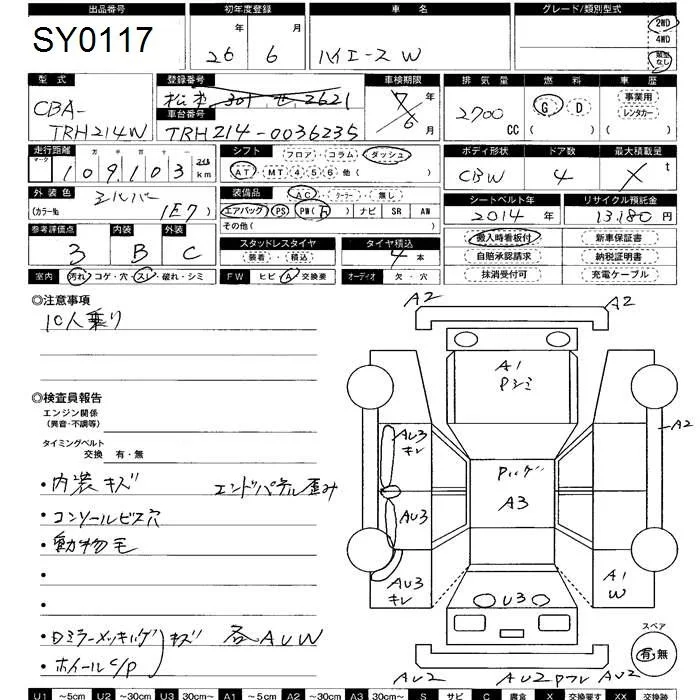 出品番号 初年度登録 車名 グレード/類別型式
SY0117 26 6 ハイエースW 2WD
4WD
類型なし
型式 登録番号 車検期限 排気量 燃料 車歴
CBA-
TRH214W
松本 301 せ 2621
車台番号
TRH214-0036235
7年
6月
2700 CC
G D
( ) ( )
事業用
レンタカー
走行距離 シフト フロア・コラム・ダッシュ ボディ形状 ドア数 最大積載量
マーク 万 千 百 十 一
109103 km
AT・MT 4 5 6 他( )
CBW 4 t
外装色 シルバー
(カラーNo 1E7)
装備品 AC・クーラー・無し
エアバッグ PS PW ナビ SR AW
その他( )
シートベルト年 リサイクル預託金
2014年 13,180円
参考評価点 内装 外装
3 B C
スタッドレスタイヤ タイヤ積込
装着・積込 4本
搬入時看板付 新車保証書
自賠承認請求 納税証明書
抹消受付可 充電ケーブル
室内 汚れ・コゲ・穴・スレ・破れ・シミ FW ヒビ・A・交換要 オーディオ 欠・穴
◎注意事項
10人乗り
◎検査員報告
エンジン関係
(異音・不調等)
タイミングベルト
交換 有・無
・内装キズ エンドパネル歪み
・コンソールビス穴
・動物毛
・
・
・Dミラーメッキング キズ 各AUW
・ホイールC/P
A2 A2
A1
Pシミ
A2
AU3
キレ
Pルーフ
A3
AU3
AU3
キレ
U3
A1
W
スペア
有・無
AU2 AU2 Pフレ AU2
U1 ~5cm U2 ~30cm U3 30cm~ A1 ~5cm A2 ~30cm A3 30cm~ S サビ C 腐食 X 交換要す XX 交換跡